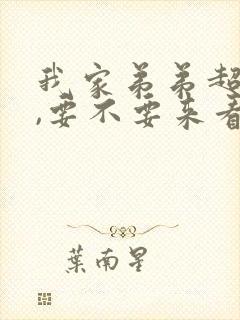 我家弟弟超
,要不要来看
葉南星